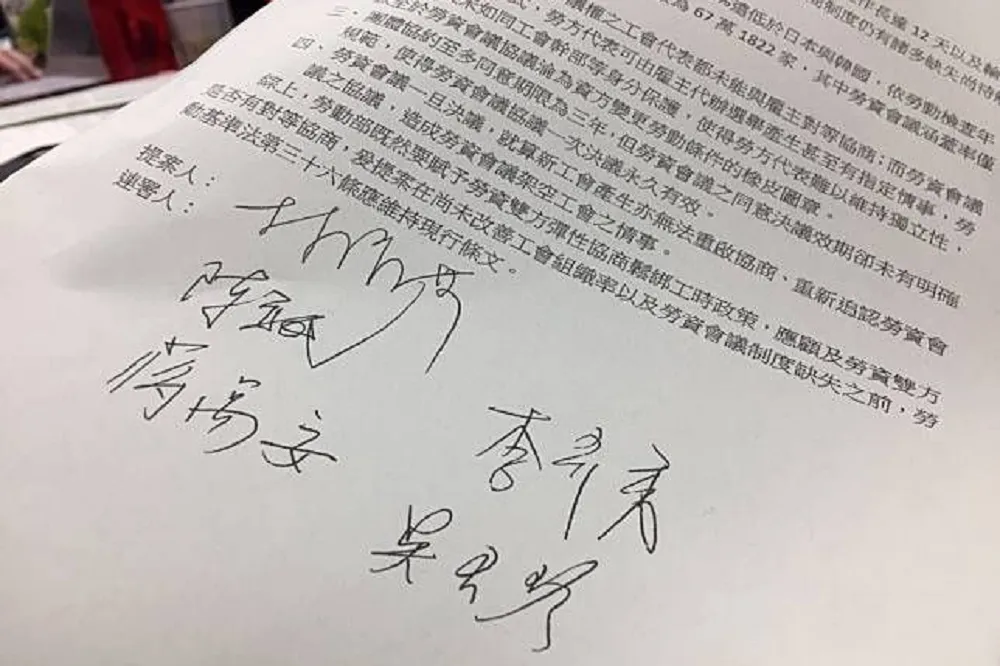 作長達 12 天以及輪
制度仍有諸多缺失尚待
為遠低於日本與韓國,依勞動檢查年
為 67 萬 1822 家,其中勞資會議涵蓋率僅
三、
議權之工會代表都未能與雇主對等協商;而勞資會議
式,勞方代表可由雇主代辦選舉產生甚至有指定情事,勞
未如同工會幹部等身分保護,使得勞方代表難以維持獨立性,
致至於勞資會議協議淪為資方變更勞動條件的橡皮圖章。
四、
團體協約至多同意期限為三年,但勞資會議之同意決議效期卻未有明確
規範,使得勞資會議協議一次決議永久有效。
勞資會議一旦決議,就算新工會產生亦無法重啟協商、重新追認勞資會
議之協議,造成勞資會議架空工會之情事。
綜上,勞動部既然要賦予勞資雙方彈性協商鬆綁工時政策,應顧及勞資雙方
是否有對等協商,爰提案在尚未改善工會組織率以及勞資會議制度缺失之前,勞
動基準法第三十六條應維持現行條文。
提案人:
連署人:
陳
蔣萬安
李彥秀
吳